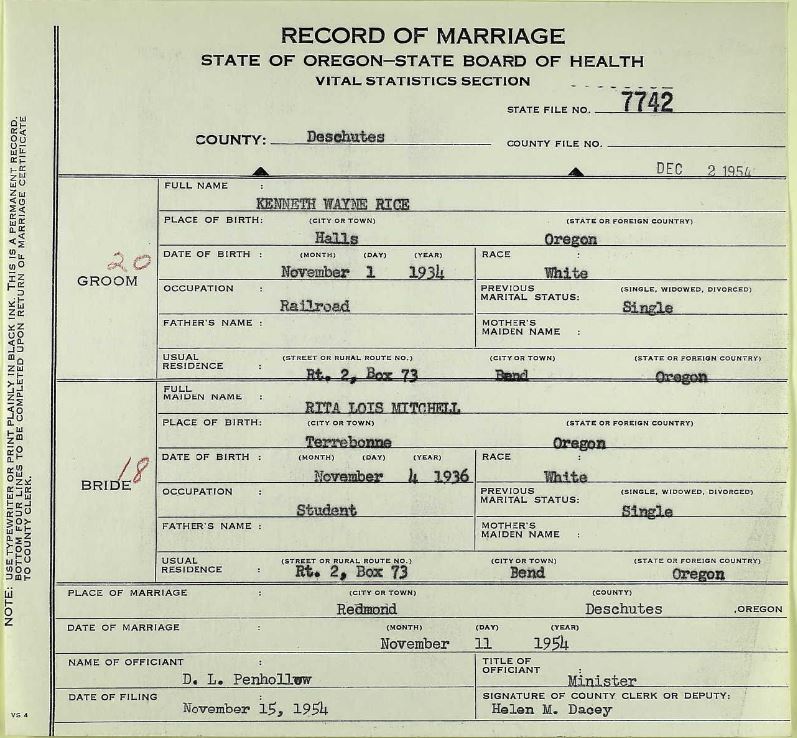 RECORD OF MARRIAGE
STATE OF OREGON—STATE BOARD OF HEALTH
VITAL STATISTICS SECTION
STATE FILE NO. 7742
COUNTY: Deschutes COUNTY FILE NO.
DEC 2 1954
GROOM 20
FULL NAME :
KENNETH WAYNE RICE
PLACE OF BIRTH: (CITY OR TOWN) (STATE OR FOREIGN COUNTRY)
Halls Oregon
DATE OF BIRTH : (MONTH) (DAY) (YEAR) RACE :
November 1 1934 White
OCCUPATION : PREVIOUS MARITAL STATUS: (SINGLE, WIDOWED, DIVORCED)
Railroad Single
FATHER'S NAME : MOTHER'S MAIDEN NAME :
USUAL RESIDENCE : (STREET OR RURAL ROUTE NO.) (CITY OR TOWN) (STATE OR FOREIGN COUNTRY)
Rt. 2, Box 73 Bend Oregon
BRIDE 18
FULL MAIDEN NAME :
RITA LOIS MITCHELL
PLACE OF BIRTH: (CITY OR TOWN) (STATE OR FOREIGN COUNTRY)
Terrebonne Oregon
DATE OF BIRTH : (MONTH) (DAY) (YEAR) RACE :
November 4 1936 White
OCCUPATION : PREVIOUS MARITAL STATUS: (SINGLE, WIDOWED, DIVORCED)
Student Single
FATHER'S NAME : MOTHER'S MAIDEN NAME :
USUAL RESIDENCE : (STREET OR RURAL ROUTE NO.) (CITY OR TOWN) (STATE OR FOREIGN COUNTRY)
Rt. 2, Box 73 Bend Oregon
PLACE OF MARRIAGE : (CITY OR TOWN) (COUNTY)
Redmond Deschutes ,OREGON
DATE OF MARRIAGE : (MONTH) (DAY) (YEAR)
November 11 1954
NAME OF OFFICIANT : TITLE OF OFFICIANT :
D. L. Penhollow Minister
DATE OF FILING : SIGNATURE OF COUNTY CLERK OR DEPUTY:
November 15, 1954 Helen M. Dacey
VS 4
NOTE: USE TYPEWRITER OR PRINT PLAINLY IN BLACK INK. THIS IS A PERMANENT RECORD.
BOTTOM FOUR LINES TO BE COMPLETED UPON RETURN OF MARRIAGE CERTIFICATE
TO COUNTY CLERK.